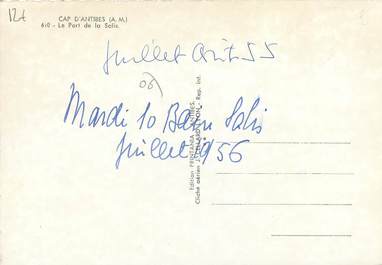 12t
CAP D'ANTIBES (A.M.)
610 - Le Port de la Salis.
Juillet Août 55
06
Mardi 10 Bain Salis
Juillet 1956
Edition PRINTANIA - ANTIBES.
Cliché aérien - LYON - Rep. int.